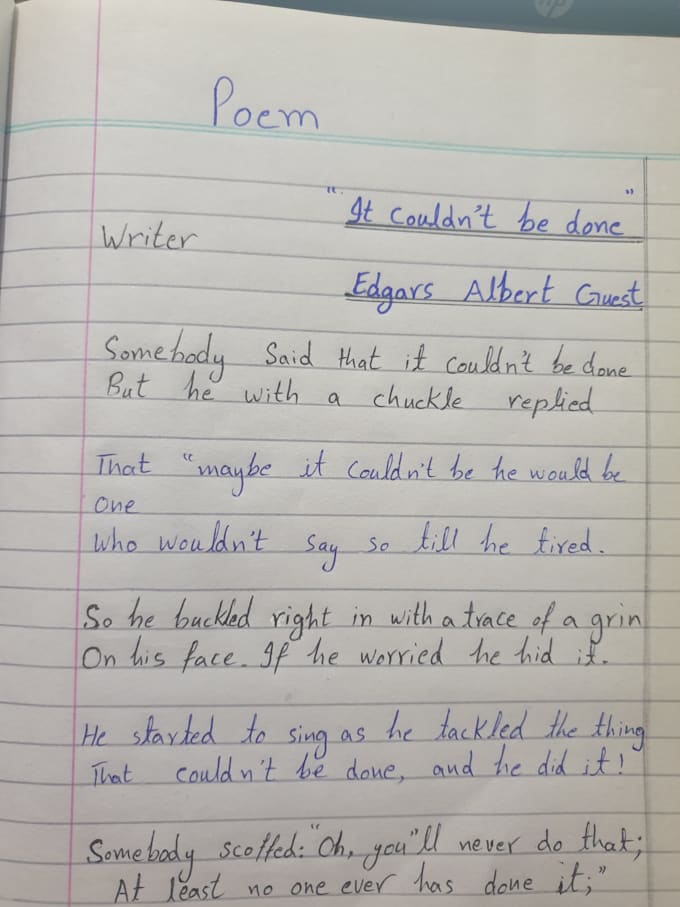 Poem
" It couldn't be done "
Writer
Edgars Albert Guest
Somebody Said that it couldn't be done
But he with a chuckle replied
That "maybe it couldn't be he would be
one
Who wouldn't say so till he tired.
So he buckled right in with a trace of a grin
On his face. If he worried he hid it.
He started to sing as he tackled the thing
That couldn't be done, and he did it!
Somebody scoffed: "Oh, you"ll never do that;
At least no one ever has done it;"